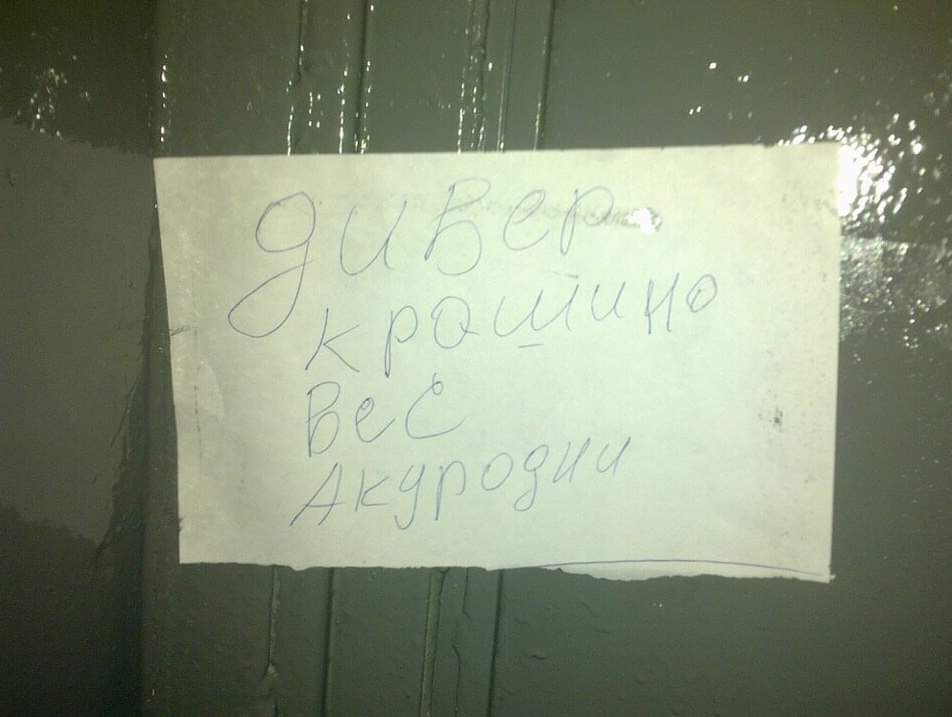 дивер
крашино
вес
Акуродни